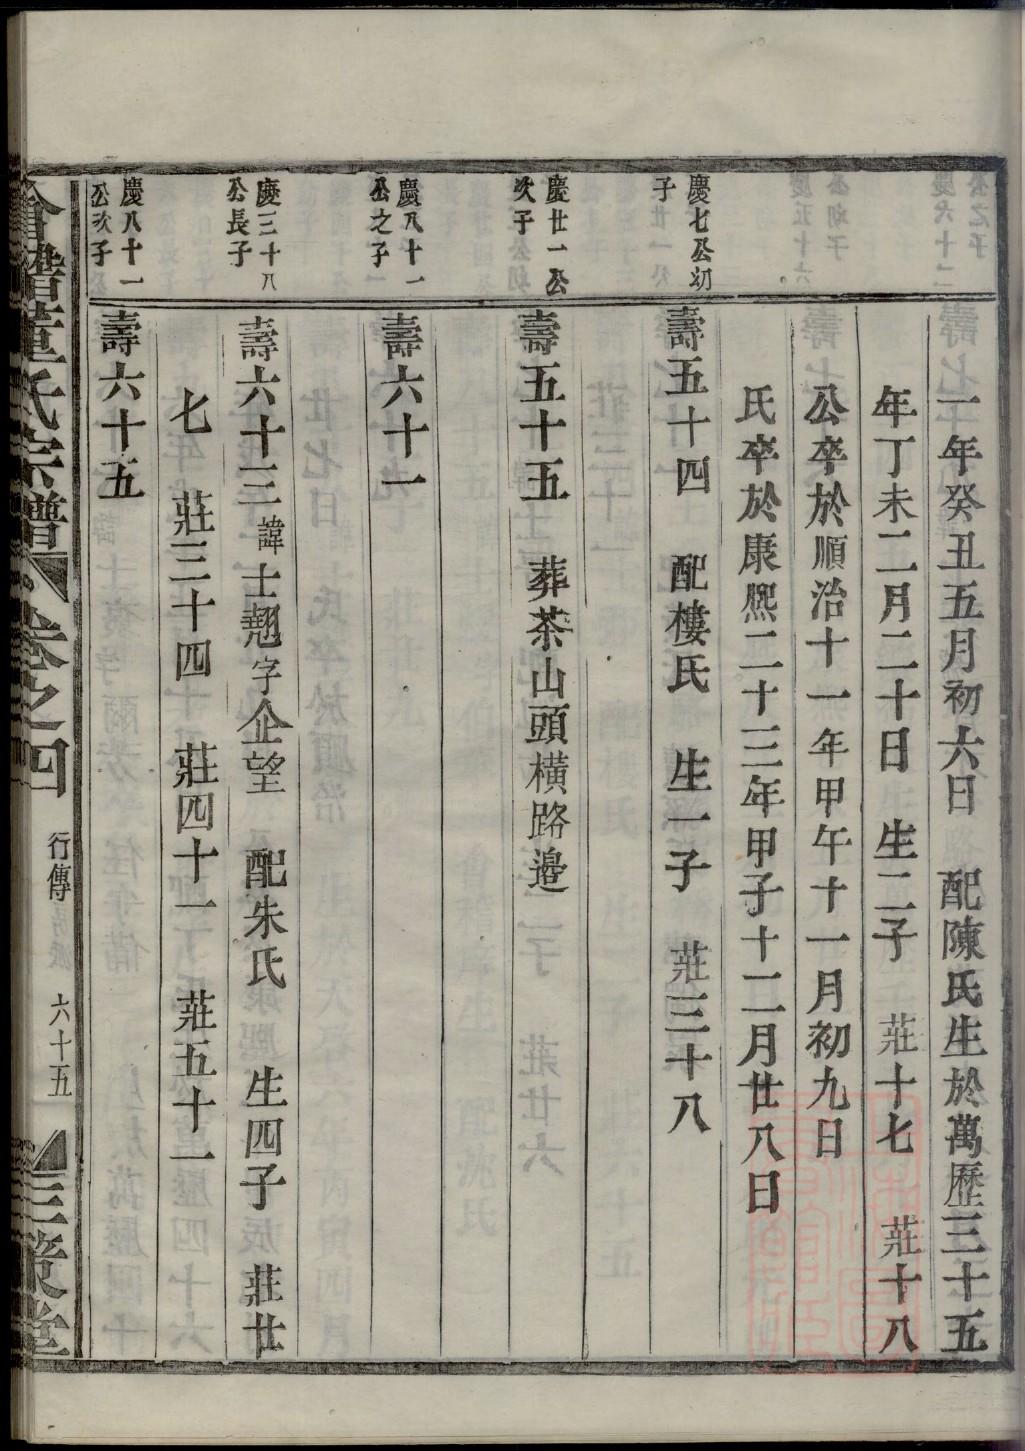 一年癸丑五月初六日　配陳氏生於萬歷三十五
年丁未二月二十日　生二子　莊十七　莊十八
公卒於順治十一年甲午十一月初九日
氏卒於康熙二十三年甲子十二月廿八日
慶七公幼
子
壽五十四　配樓氏　生一子　莊三十八
慶廿一公
次子
壽五十五　葬茶山頭橫路邊
慶八十一
公之子
壽六十一
慶三十八
公長子
壽六十三諱士翹字企望　配朱氏　生四子　莊廿
七　莊三十四　莊四十一　莊五十一
慶八十一
公次子
壽六十五
會稽董氏宗譜　卷之四　行傳　六十五　三策堂